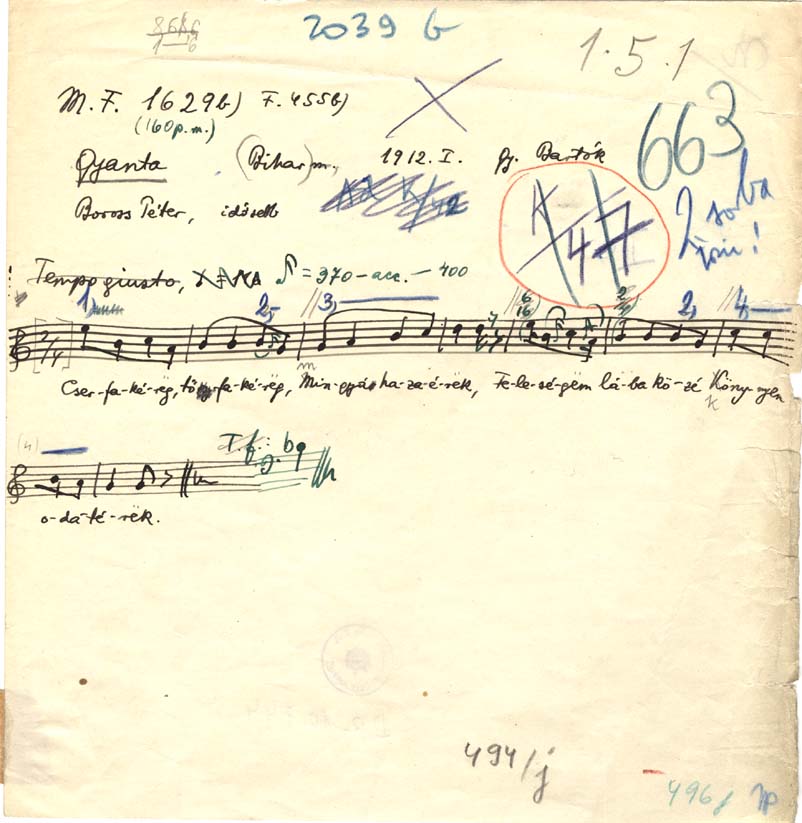 8686
1—6
2039 b
1.5.1
M. F. 1629b) F. 455b)
(160 p.m.)
663
Gyanta (Bihar) m. 1912. I. Gy. Bartók
Boross Péter, idősebb
A 47
2 sorba
írni!
Tempo giusto, ♪ = 370 - acc. — 400
1, 2, 3, 2, 4,
Cser-fa-ké-rëg, töl-fa-ké-rëg, Min-gyár ha-za-é-rëk, Fe-le-sé-gëm lá-ba kö-zé Köny-nyen
T. f.:
o-da-té-rëk.
494/j
496